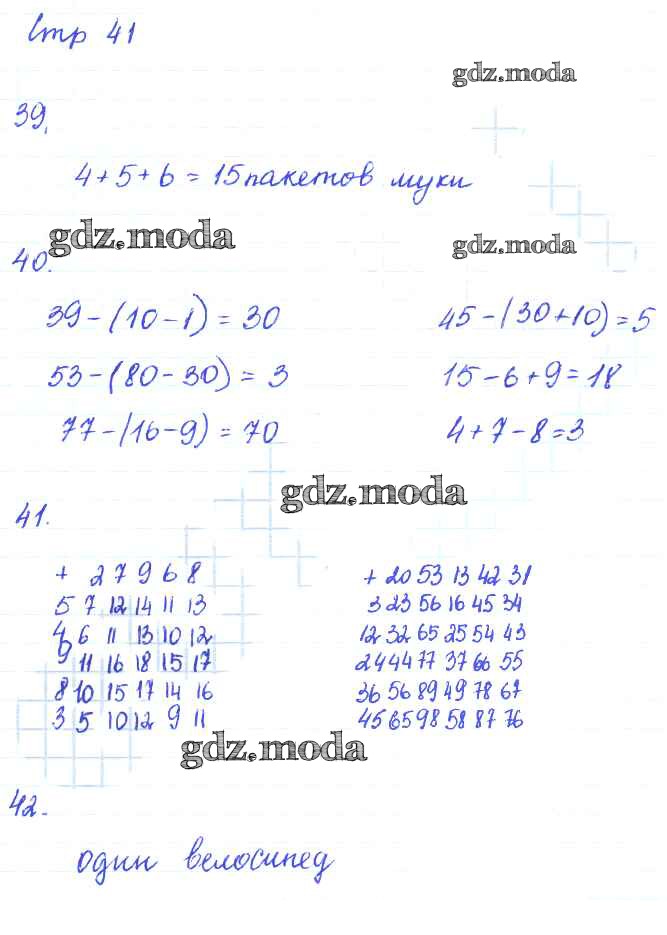 Стр 41
gdz.moda
39.
4+5+6=15 пакетов муки
gdz.moda
gdz.moda
40.
39-(10-1)=30 45-(30+10)=5
53-(80-30)=3 15-6+9=18
77-(16-9)=70 4+7-8=3
gdz.moda
41.
+ 2 7 9 6 8 + 20 53 13 42 31
5 7 12 14 11 13 3 23 56 16 45 34
4 6 11 13 10 12 12 32 65 25 54 43
9 11 16 18 15 17 24 44 77 37 66 55
8 10 15 17 14 16 36 56 89 49 78 67
3 5 10 12 9 11 45 65 98 58 87 76
gdz.moda
42.
один велосипед